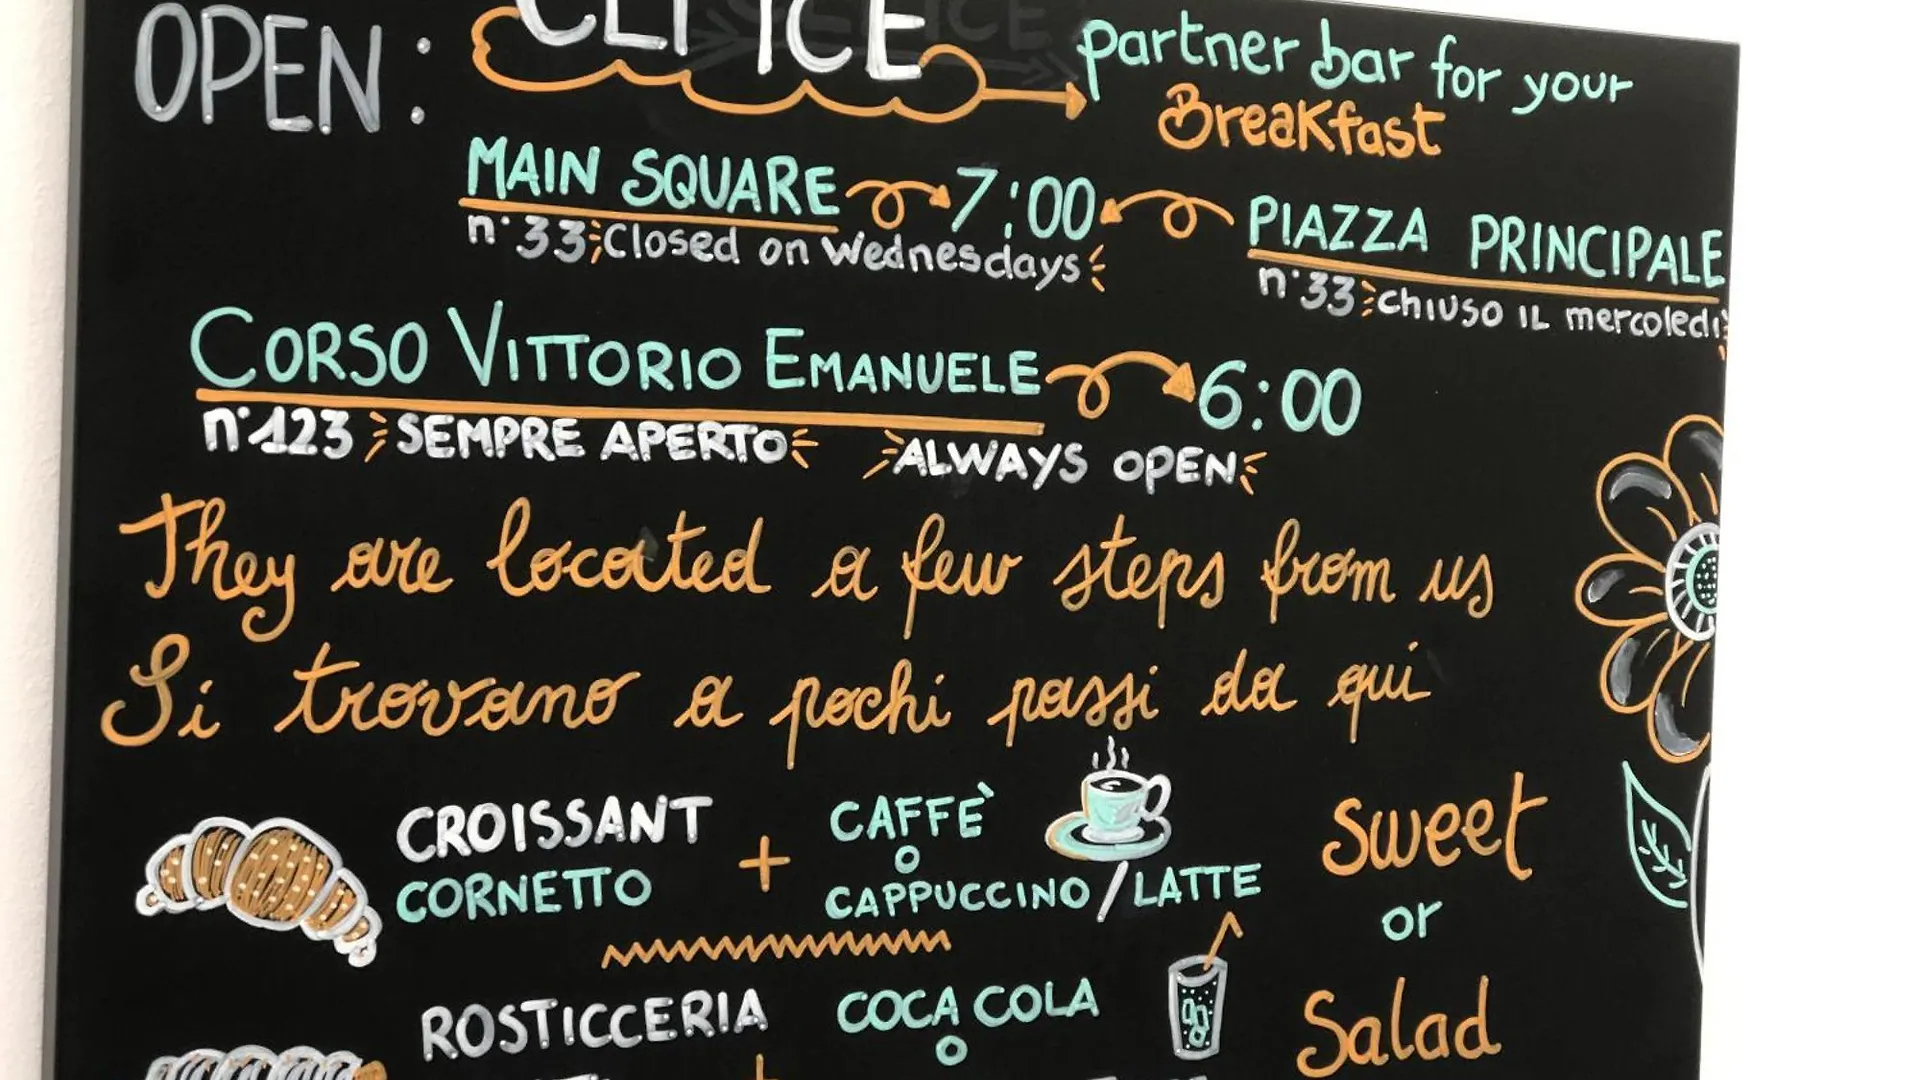 OPEN:
partner bar for your
Breakfast
MAIN SQUARE 7:00 PIAZZA PRINCIPALE
n°33 Closed on Wednesdays n°33 CHIUSO IL mercoledì
CORSO VITTORIO EMANUELE 6:00
n°123 SEMPRE APERTO ALWAYS OPEN
They are located a few steps from us
Si trovano a pochi passi da qui
CROISSANT + CAFFÈ
CORNETTO o
CAPPUCCINO / LATTE
Sweet
or
Salad
ROSTICCERIA COCA COLA
o